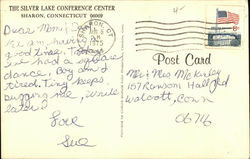 THE SILVER LAKE CONFERENCE CENTER
SHARON, CONNECTICUT 06069
Dear Mom,
having
good time. Today
we had a square
dance. Boy am I
tired. Ting keeps
bugging me. Write
later
Love
Sue
1975
Post Card
Mr & Mrs McKinley
157 Ransom Hall Rd
Wolcott, Conn
06716